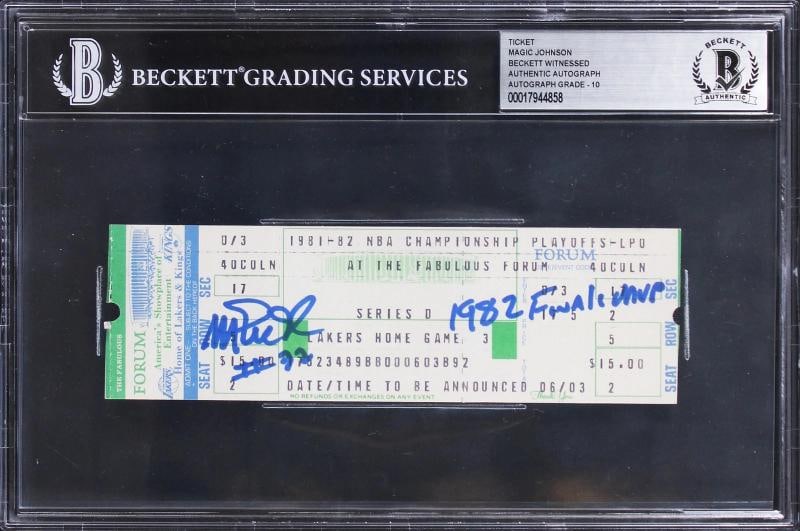 BECKETT GRADING SERVICES
TICKET
MAGIC JOHNSON
BECKETT WITNESSED
AUTHENTIC AUTOGRAPH
AUTOGRAPH GRADE - 10
00017944858
BECKETT
B
AUTHENTIC
THE FABULOUS
FORUM
America's Showplace of
Entertainment
Home of Lakers & Kings
KINGS
LAKERS
ADMIT ONE
SUBJECT TO THE CONDITIONS
ON THE BACK HEREOF
SEAT ROW SEC
0/3 1981-82 NBA CHAMPIONSHIP PLAYOFFS-LPO
40COLN AT THE FABULOUS FORUM FORUM 40COLN
17 0/3
SERIES D 5 2
LAKERS HOME GAME 3 5
$15.00 $15.00
2 DATE/TIME TO BE ANNOUNCED 06/03 2
NO REFUNDS OR EXCHANGES ON ANY EVENT
Thank You
SEAT ROW SEC
Magic Johnson
#32
1982 Finals MVP